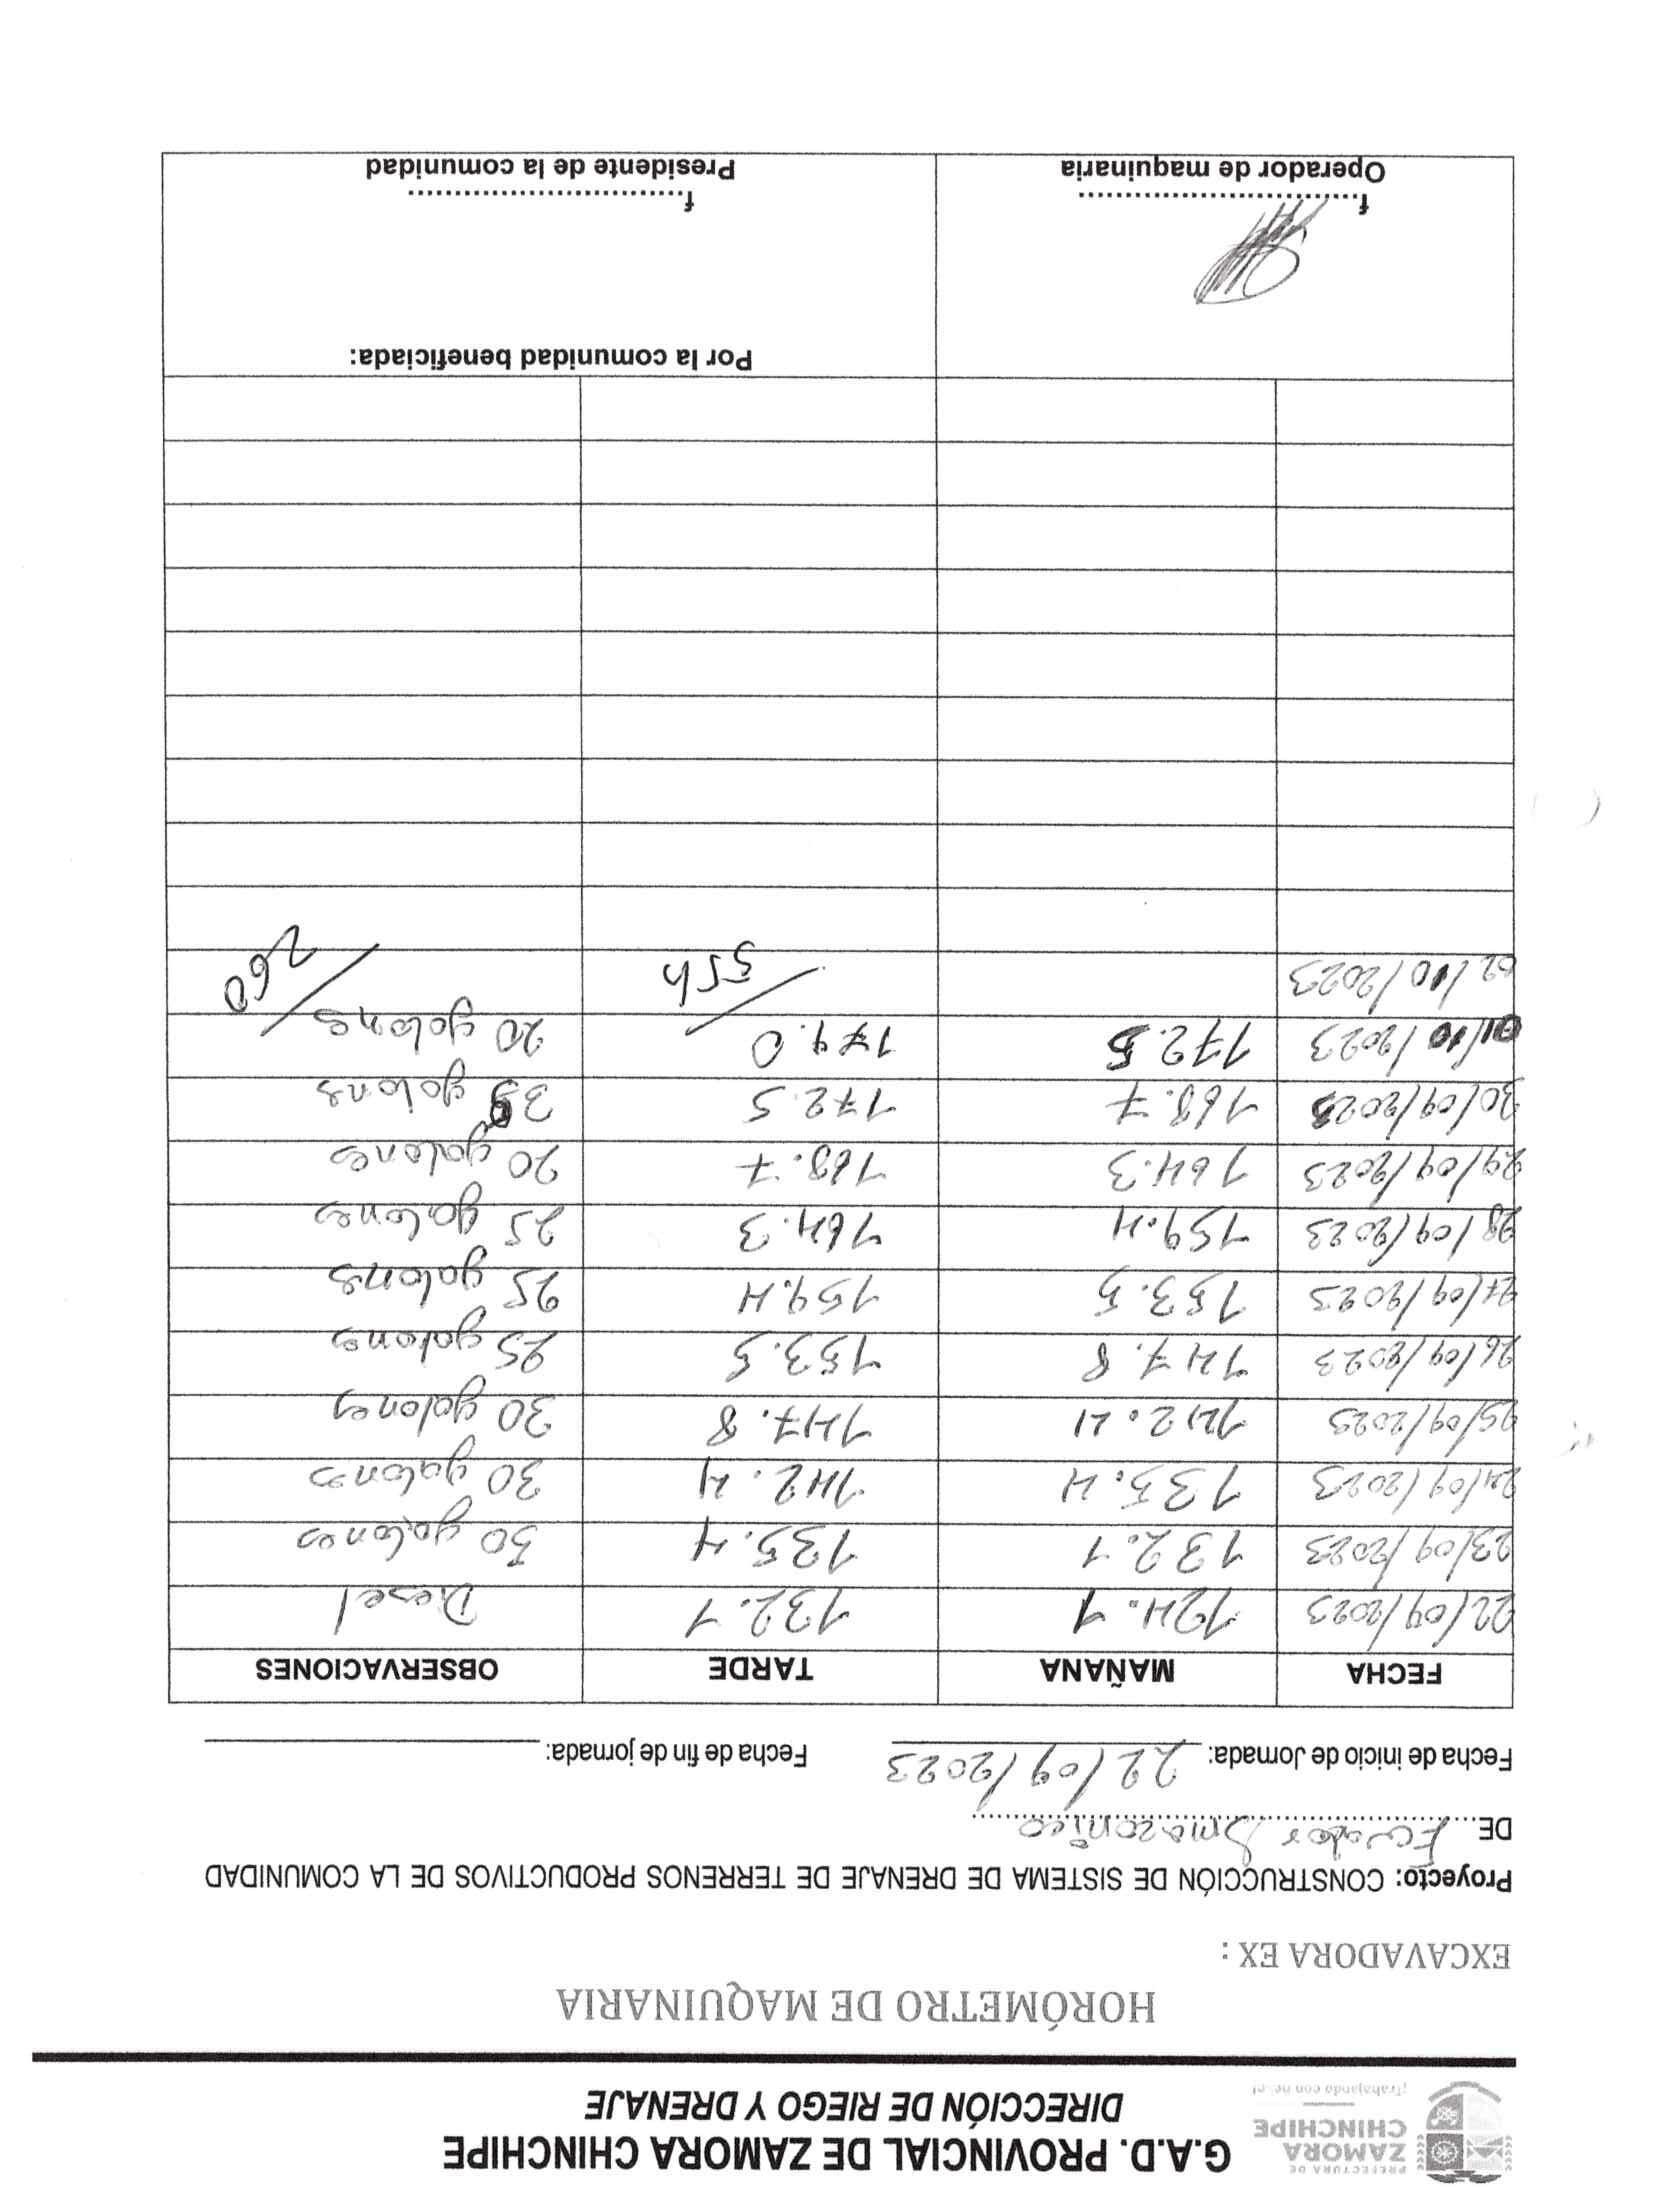 PREFECTURA DE
ZAMORA
CHINCHIPE
G.A.D. PROVINCIAL DE ZAMORA CHINCHIPE
DIRECCIÓN DE RIEGO Y DRENAJE
HORÓMETRO DE MAQUINARIA
EXCAVADORA EX :
Proyecto: CONSTRUCCIÓN DE SISTEMA DE DRENAJE DE TERRENOS PRODUCTIVOS DE LA COMUNIDAD
DE... Ecuador Amazonico
Fecha de inicio de Jornada: 22/09/2023 Fecha de fin de jornada:
FECHA MAÑANA TARDE OBSERVACIONES
22/09/2023 124.1 132.1 Diesel
23/09/2023 132.1 135.4 50 galones
24/09/2023 135.4 142.4 30 galones
25/09/2023 142.4 147.8 30 galones
26/09/2023 147.8 153.5 25 galones
27/09/2023 153.5 159.4 25 galons
28/09/2023 159.4 164.3 25 galones
29/09/2023 164.3 168.7 20 galones
30/09/2023 168.7 172.5 35 galons
01/10/2023 172.5 179.0 20 galones
02/10/2023 55h 260
Por la comunidad beneficiada:
f..............................
Operador de maquinaria
f..............................
Presidente de la comunidad